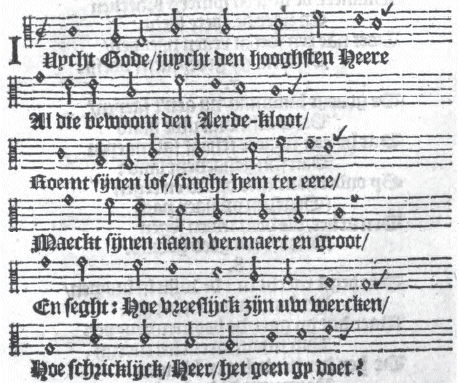 IUycht Gode/juycht den hooghsten Heere
Al die bewoont den Aerde-kloot/
Roemt sijnen lof/singht hem ter eere/
Maeckt sijnen naem vermaert en groot/
En seght: Hoe vreeslijck zijn uw wercken/
Hoe schricklijck/Heer/het geen gy doet!